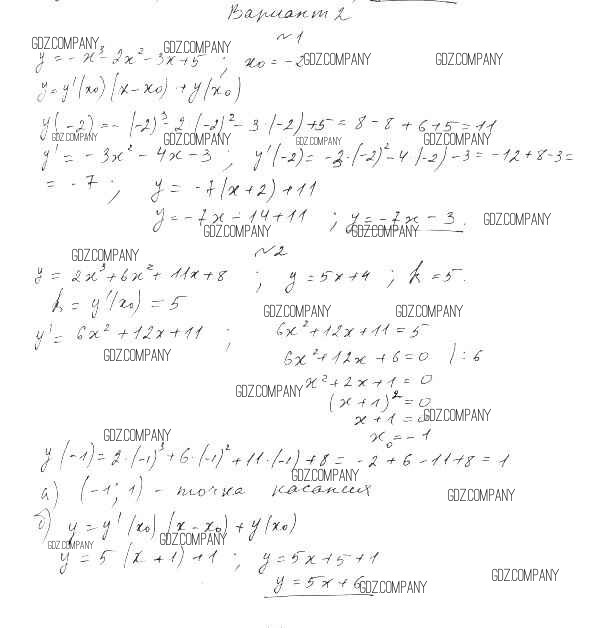 Вариант 2
№1
GDZ.COMPANY GDZ.COMPANY GDZ.COMPANY GDZ.COMPANY
y = - x³ - 2x² - 3x + 5 ; x₀ = -2
y = y'(x₀)(x - x₀) + y(x₀)
y(-2) = -(-2)³ - 2(-2)² - 3·(-2) + 5 = 8 - 8 + 6 + 5 = 11
GDZ.COMPANY GDZ.COMPANY GDZ.COMPANY GDZ.COMPANY
y' = - 3x² - 4x - 3 ; y'(-2) = -3·(-2)² - 4(-2) - 3 = -12 + 8 - 3 =
= - 7 ; y = -7(x + 2) + 11
y = -7x - 14 + 11 ; y = -7x - 3. GDZ.COMPANY
GDZ.COMPANY GDZ.COMPANY
№2
GDZ.COMPANY
y = 2x³ + 6x² + 11x + 8 ; y = 5x + 4 ; k = 5.
k = y'(x₀) = 5
GDZ.COMPANY GDZ.COMPANY
y' = 6x² + 12x + 11 ; 6x² + 12x + 11 = 5
GDZ.COMPANY 6x² + 12x + 6 = 0 | : 6
GDZ.COMPANY x² + 2x + 1 = 0
(x + 1)² = 0
x + 1 = 0 GDZ.COMPANY
GDZ.COMPANY x₀ = -1
y(-1) = 2·(-1)³ + 6·(-1)² + 11·(-1) + 8 = -2 + 6 - 11 + 8 = 1
GDZ.COMPANY
а) (-1; 1) - точка касания GDZ.COMPANY
б) y = y'(x₀)(x - x₀) + y(x₀)
GDZ.COMPANY GDZ.COMPANY
y = 5(x + 1) + 1 ; y = 5x + 5 + 1
y = 5x + 6 GDZ.COMPANY GDZ.COMPANY